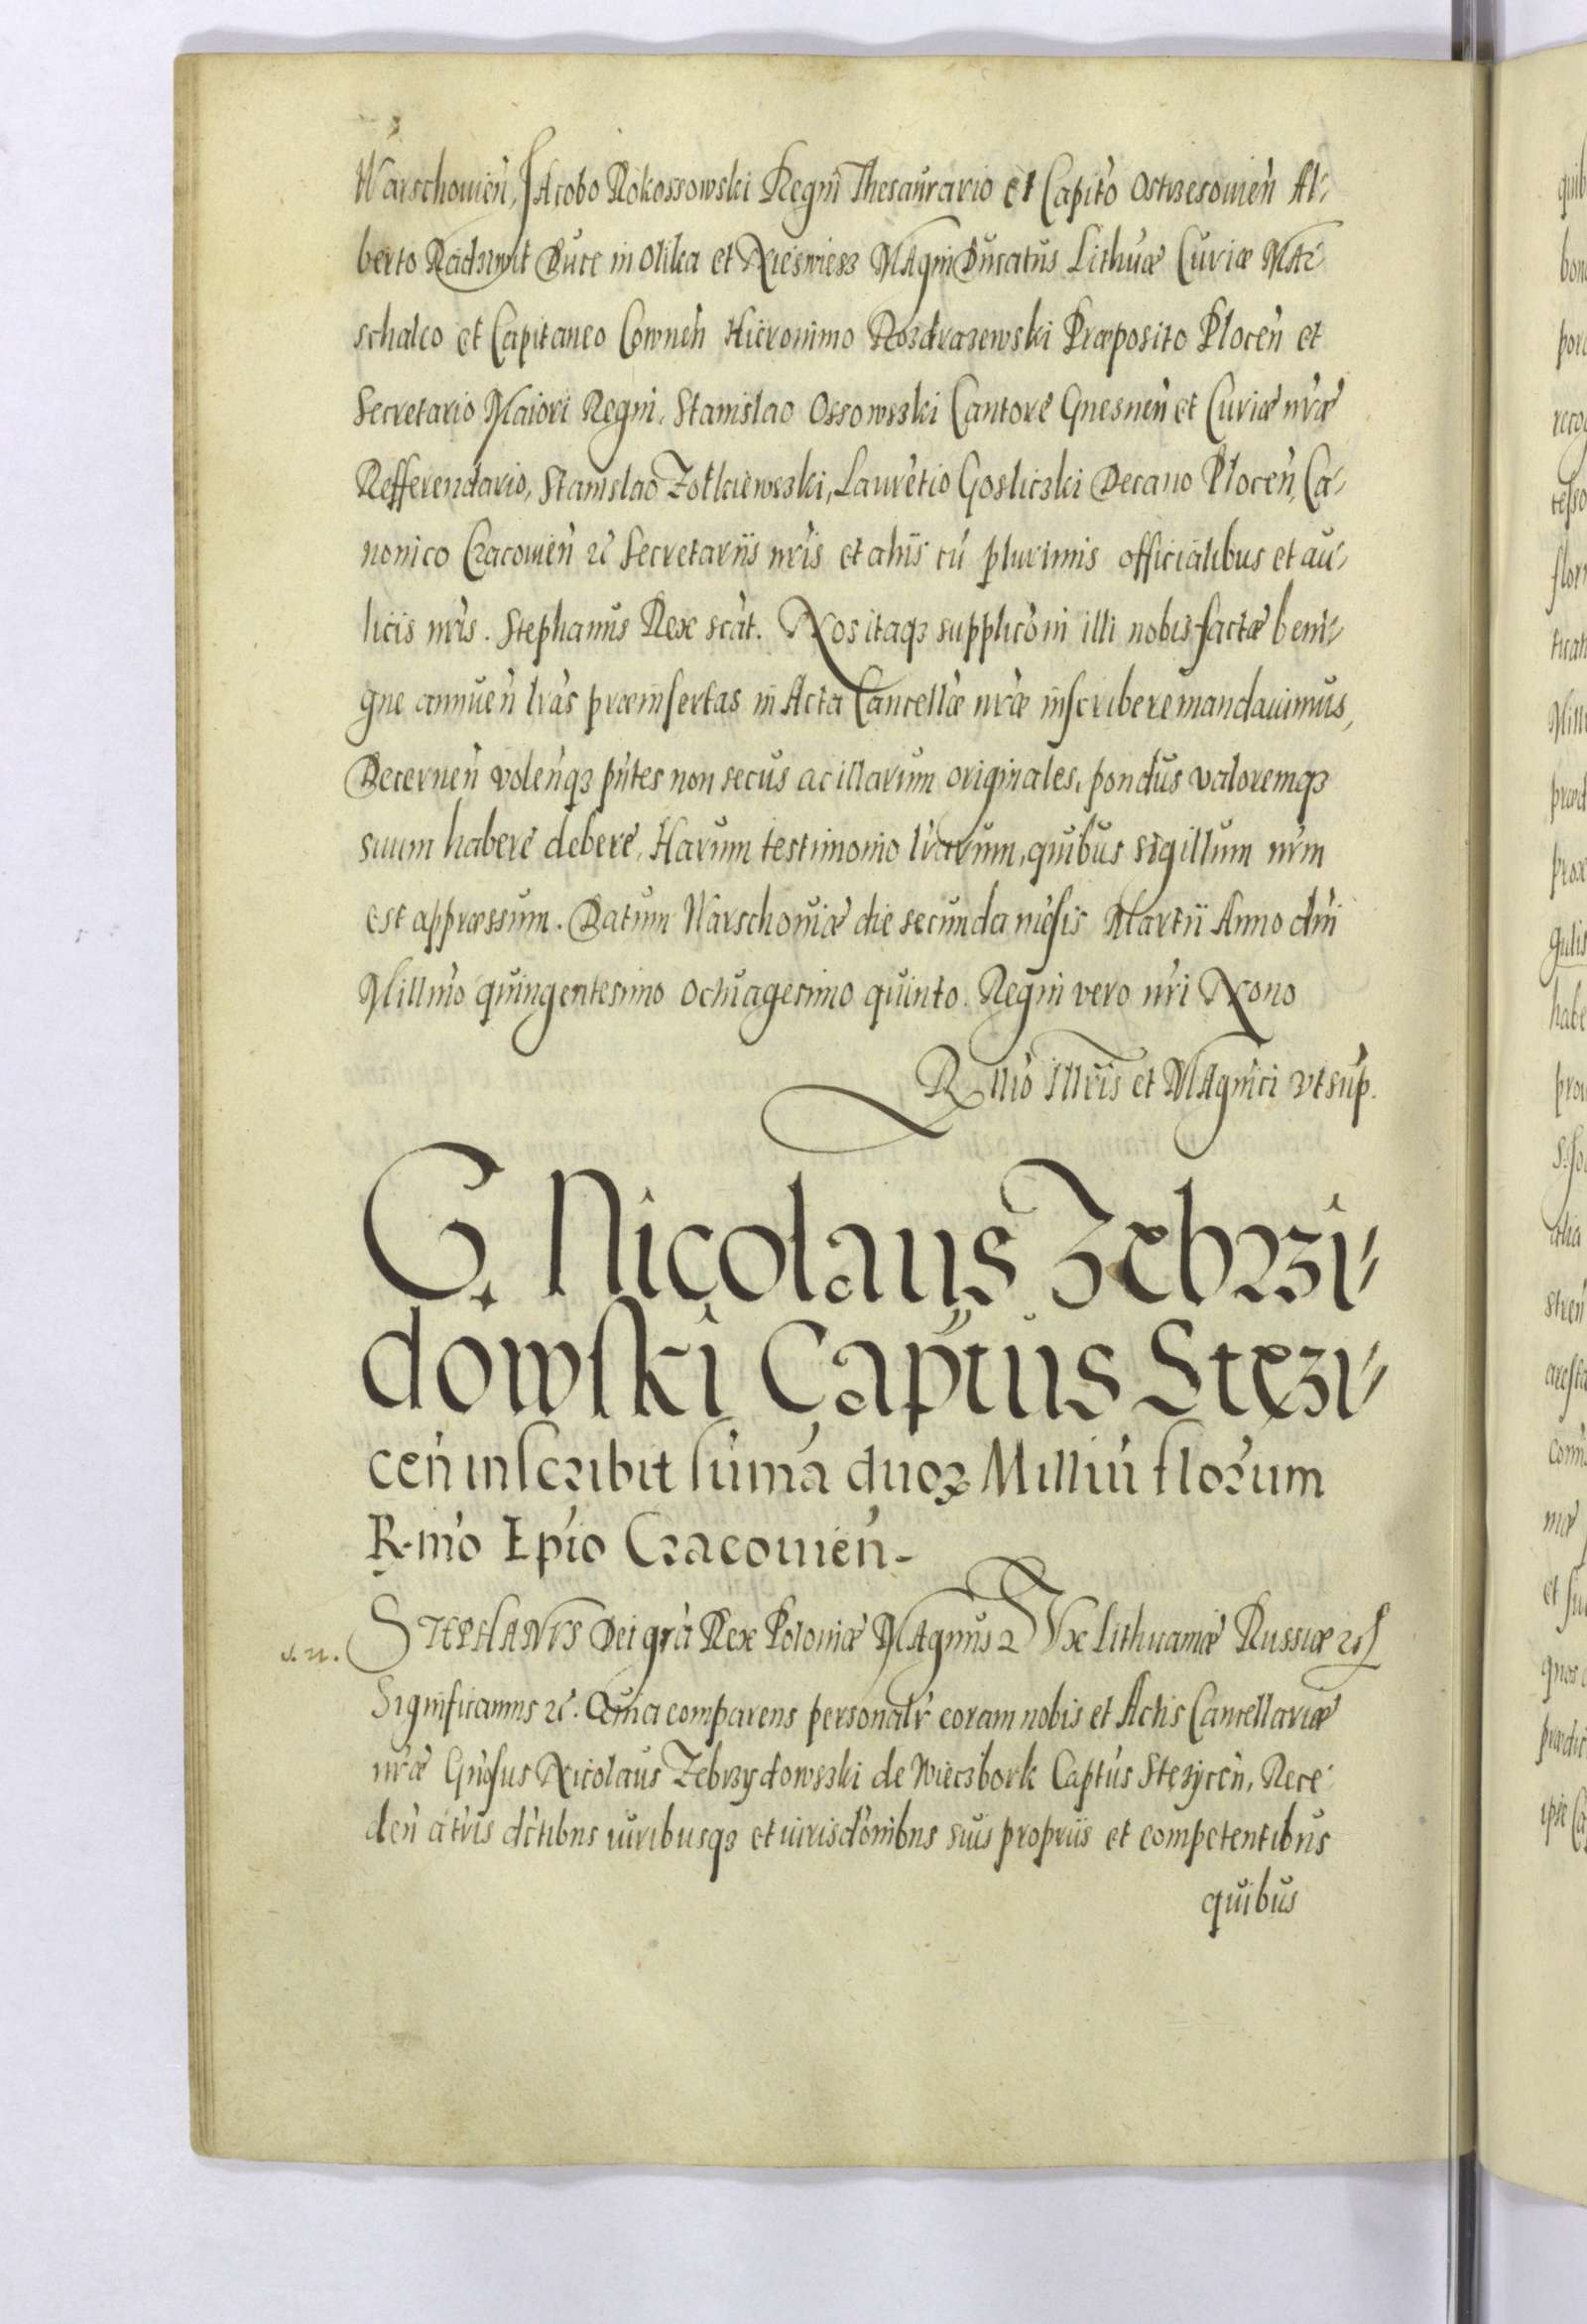 Warschovien̄, Jacobo Rokossowski Regni Thesaurario et Capit̄o Ostrzesovien̄ Al-
berto Radziwił Duce in Olika et Nieswiesz Magni Ducatus Lithuæ Curiæ Mar-
schalco et Capitaneo Cownen̄ Hieronimo Rozdrazewski Præposito Plocen̄ et
Secretario Maiori Regni, Stanislao Ossowszki Cantore Gnesnen̄ et Curiæ nr̄æ
Refferendario, Stanislao Zołkiewszki, Laurētio Gosliczki Decano Plocen̄, Ca-
nonico Cracovien̄ &c Secretariis nr̄is et aliis cū plurimis officialibus et au-
licis nr̄is. Stephanus Rex sc̄at. Nos itaq₃ supplicōni illi nobis factæ beni-
gne annuen̄ lr̄as præinsertas in Acta Cancellæ nr̄æ inscribere mandavimus,
Decernen̄ volen̄q₃ pn̄tes non secus ac illarum originales, pondus valoremq₃
suum habere debere, Harum testimonio lr̄arum, quibus sigillum nr̄m
est appræssum. Datum Warschoviæ die secunda mēsis Martii Anno dn̄i
Millmo quingentesimo octuagesimo quinto. Regni vero nr̄i Nono
Rllio Illr̄is et Magn̄ci vt sup.
G. Nicolaus Zebrzi-
dowski Cap̄tus Stezi-
cen̄ inscribit sum̄ā duoꝝ Milliū flor̄um
R-mo Ep̄io Cracovien̄-
s. n.
STEPHANVS Dei grā Rex Poloniæ Magnus Dux Lithuaniæ Russiæ &c
Significamus &c. Quia comparens personalr̄ coram nobis et Actis Cancellariæ
nr̄æ Gn̄osus Nicolaus Zebrzydowszki de Wieczbork Cap̄tus Stezycen̄, Rece-
den̄ a tr̄is dc̄tibus iuribusq₃ et iurisdōnibus suis propriis et competentibus
quibus